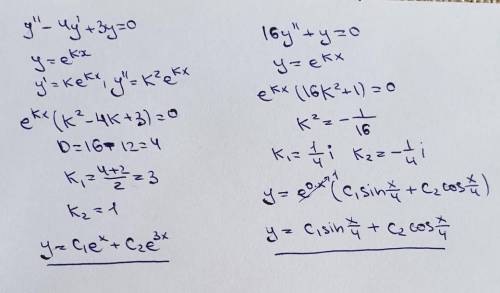 y'' - 4y' + 3y = 0
y = e^{kx}
y' = ke^{kx}, y'' = k^2 e^{kx}
e^{kx}(k^2 - 4k + 3) = 0
D = 16 - 12 = 4
k_1 = \frac{4+2}{2} = 3
k_2 = 1
y = C_1e^x + C_2e^{3x}
16y'' + y = 0
y = e^{kx}
e^{kx}(16k^2 + 1) = 0
k^2 = -\frac{1}{16}
k_1 = \frac{1}{4}i k_2 = -\frac{1}{4}i
y = e^{0·x 1}(C_1 sin\frac{x}{4} + C_2 cos\frac{x}{4})
y = C_1 sin\frac{x}{4} + C_2 cos\frac{x}{4}